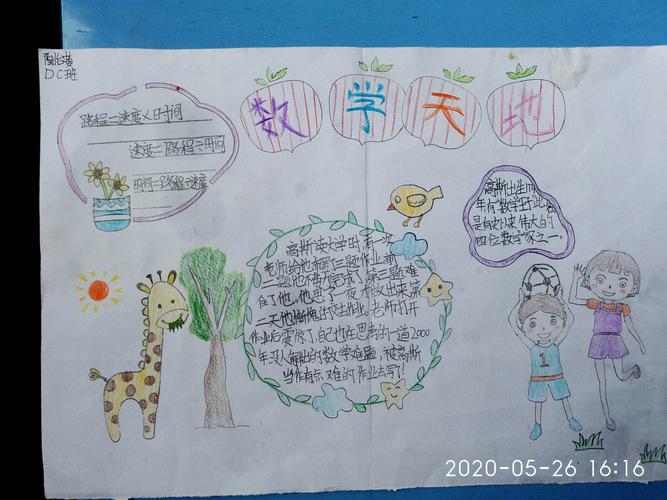 DC班
数学天地
路程=速度×时间
速度=路程÷时间
时间=路程÷速度
高斯出生
年有数学王
是有史以来伟大的
四位数学家之一。
高斯读大学时,有一次
老师给他布置三题作业,前
二题他不
第三题难
住了他。他思了一夜才做出来。第
二天他惭愧
作业,老师打开
作业后震惊了,自己也在思考的一道2000
年没人解出的数学难题,被高斯
当作有点难的作业去写!
1
2020-05-26 16:16